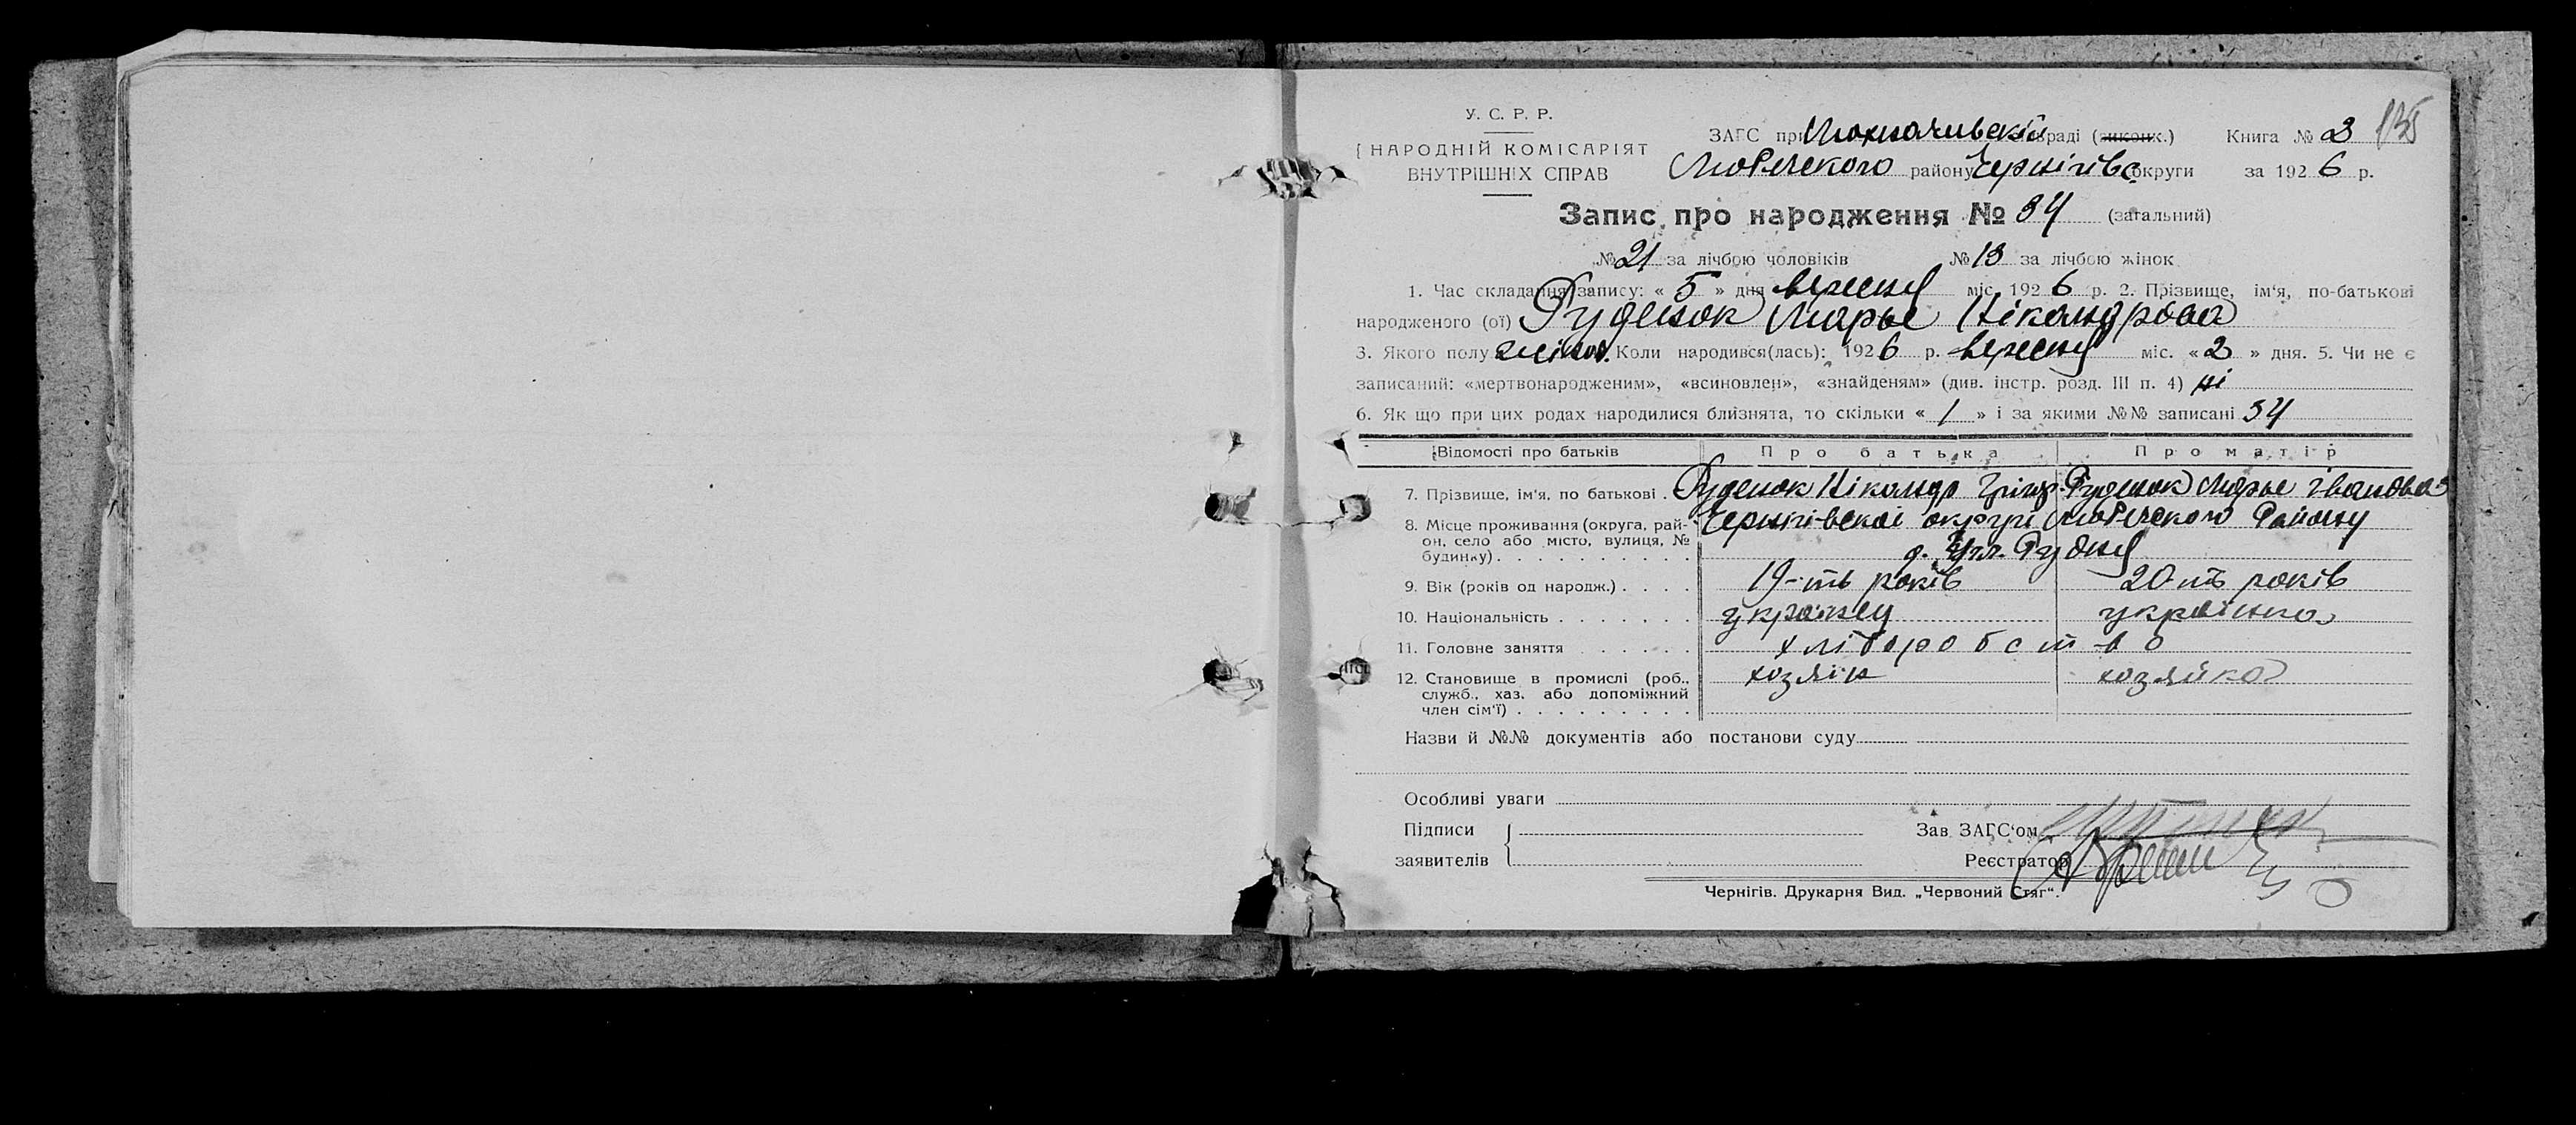 У. С. Р. Р.
НАРОДНІЙ КОМІСАРІЯТ
ВНУТРІШНІХ СПРАВ
ЗАГС при Мохначивскій раді (виконк.) Книга № 3
Любечского району Чернігівс округи за 1926 р.
Запис про народження № 34 (загальний)
№ 21 за лічбою чоловіків № 13 за лічбою жінок
1. Час складання запису: « 5 » дня вересня міс. 1926 р. 2. Прізвище, ім'я, по-батькові
народженого (ої) Руденок Марья Нікандрова
3. Якого полу жіноч. Коли народився(лась): 1926 р. вересня міс. « 2 » дня. 5. Чи не є
записаний: «мертвонародженим», «всиновлен», «знайденям» (див. інстр. розд. III п. 4) ні
6. Як що при цих родах народилися близнята, то скільки « 1 » і за якими №№ записані 34
Відомості про батьків Про батька Про матір
7. Прізвище, ім'я, по батькові . Руденок Нікандр Григор. Руденок Марья Іванова
8. Місце проживання (округа, рай- Чернігівскоі округі Любечского Району
он, село або місто, вулиця, №
будинку) . . . . . . . . . . д. Рудня
9. Вік (років од народж.) . . . . 19-ть років 20-ть років
10. Національність . . . . . . . українец українка
11. Головне заняття . . . . . . хліборобство
12. Становище в промислі (роб., хозяін хозяйка
служб., хаз. або допоміжний
член сім'ї) . . . . . . . . .
Назви й №№ документів або постанови суду
Особливі уваги
Підписи
заявителів
Зав. ЗАГС'ом
Реєстратор
Чернігів. Друкарня Вид. „Червоний Стяг“.